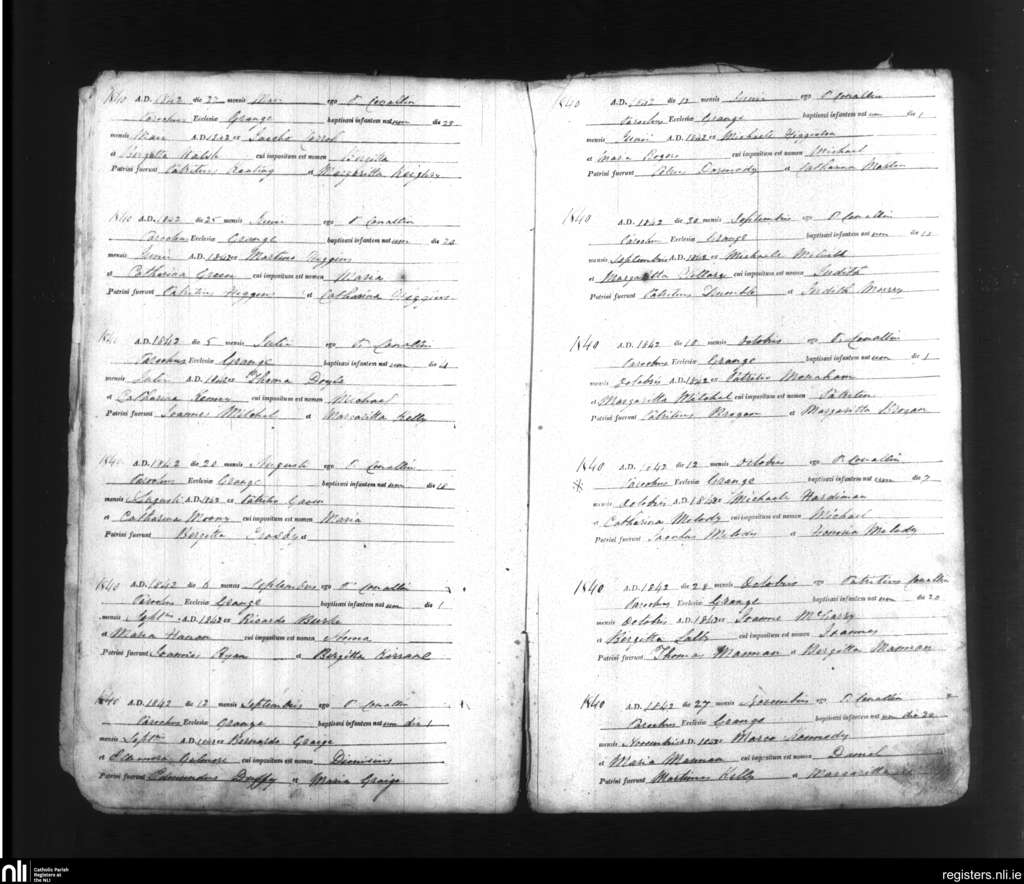 1840 A.D. 1842 die 23 mensis Maii ego P. Conallin
Parochus Ecclesiæ Grange baptisavi infantem natum die 23
mensis Maii A.D. 1842 ex Jacobo
et Birgitta Walsh cui impositum est nomen Birgitta
Patrini fuerunt Patritius Keating et Margaritta Keighry
1840 A.D. 1842 die 25 mensis Junii ego P. Conallin
Parochus Ecclesiæ Grange baptisavi infantem natum die 20
mensis Junii A.D. 1842 ex Martino Higgins
et Catharina Green cui impositum est nomen Maria
Patrini fuerunt Patritius Higgins et Catharina Higgins
1840 A.D. 1842 die 5 mensis Julii ego P. Conallin
Parochus Ecclesiæ Grange baptisavi infantem natum die 4
mensis Julii A.D. 1842 ex Thoma Doyle
et Catharina cui impositum est nomen Michael
Patrini fuerunt Joannes Mitchel et Margaritta Kelly
1840 A.D. 1842 die 20 mensis Augusti ego P. Conallin
Parochus Ecclesiæ Grange baptisavi infantem natum die 18
mensis Augusti A.D. 1842 ex Patritio Gavin
et Catharina Moony cui impositum est nomen Maria
Patrini fuerunt Birgitta Crosby et
1840 A.D. 1842 die 6 mensis Septembris ego P. Conallin
Parochus Ecclesiæ Grange baptisavi infantem natum die 1
mensis Septris A.D. 1842 ex Ricardo Burke
et Maria Hanan cui impositum est nomen Thoma
Patrini fuerunt Joannes Ryan et Birgitta Kerrane
1840 A.D. 1842 die 12 mensis Septembris ego P. Conallin
Parochus Ecclesiæ Grange baptisavi infantem natum die 1
mensis Septris A.D. 1842 ex Bernardo Graige
et Eleanora cui impositum est nomen Dionisius
Patrini fuerunt Edmundus Duffy et Maria Graige
1840 A.D. 1842 die 12 mensis Junii ego P. Conallin
Parochus Ecclesiæ Grange baptisavi infantem natum die 1
mensis Junii A.D. 1842 ex Michaele Higgins
et Maria Rogers cui impositum est nomen Michael
Patrini fuerunt Dermody et Catharina
1840 A.D. 1842 die 30 mensis Septembris ego P. Conallin
Parochus Ecclesiæ Grange baptisavi infantem natum die
mensis Septembris A.D. 1842 ex Michaele
et Margaritta cui impositum est nomen Judith
Patrini fuerunt Patritius Trimble et Judith Morris
1840 A.D. 1842 die 10 mensis Octobris ego P. Conallin
Parochus Ecclesiæ Grange baptisavi infantem natum die 1
mensis Octobris A.D. 1842 ex Patritio Monaham
et Margaritta Mitchel cui impositum est nomen Patritius
Patrini fuerunt Patritius Brogan et Margaritta Brogan
1840 A.D. 1842 die 12 mensis Octobris ego P. Conallin
Parochus Ecclesiæ Grange baptisavi infantem natum die 7
mensis Octobris A.D. 1842 ex Michaele Hardiman
et Catharina Melody cui impositum est nomen Michael
Patrini fuerunt Jacobus Melody et Honoria Melody
1840 A.D. 1842 die 28 mensis Octobris ego Patritius Conallin
Parochus Ecclesiæ Grange baptisavi infantem natum die 20
mensis Octobris A.D. 1842 ex Joanne McGarry
et Birgitta Lally cui impositum est nomen Joannes
Patrini fuerunt Thomas Mannan et Birgitta Mannan
1840 A.D. 1842 die 27 mensis Novembris ego P. Conallin
Parochus Ecclesiæ Grange baptisavi infantem natum die 20
mensis Novembris A.D. 1842 ex Marco Kennedy
et Maria Mannan cui impositum est nomen Daniel
Patrini fuerunt Martinus Kelly et Margaritta
nli
Catholic Parish
Registers at
the NLI
registers.nli.ie